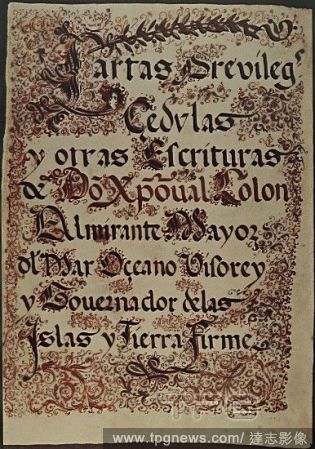 Cartas Previlegˢ
Cedulas
y otras Escrituras
de Dō Xpōual Colon
Almirante Mayor
dl Mar Oceano Visorey
y Gouernador d las
Islas y Tierra Firme
www.tpgnews.com/ 達志影像